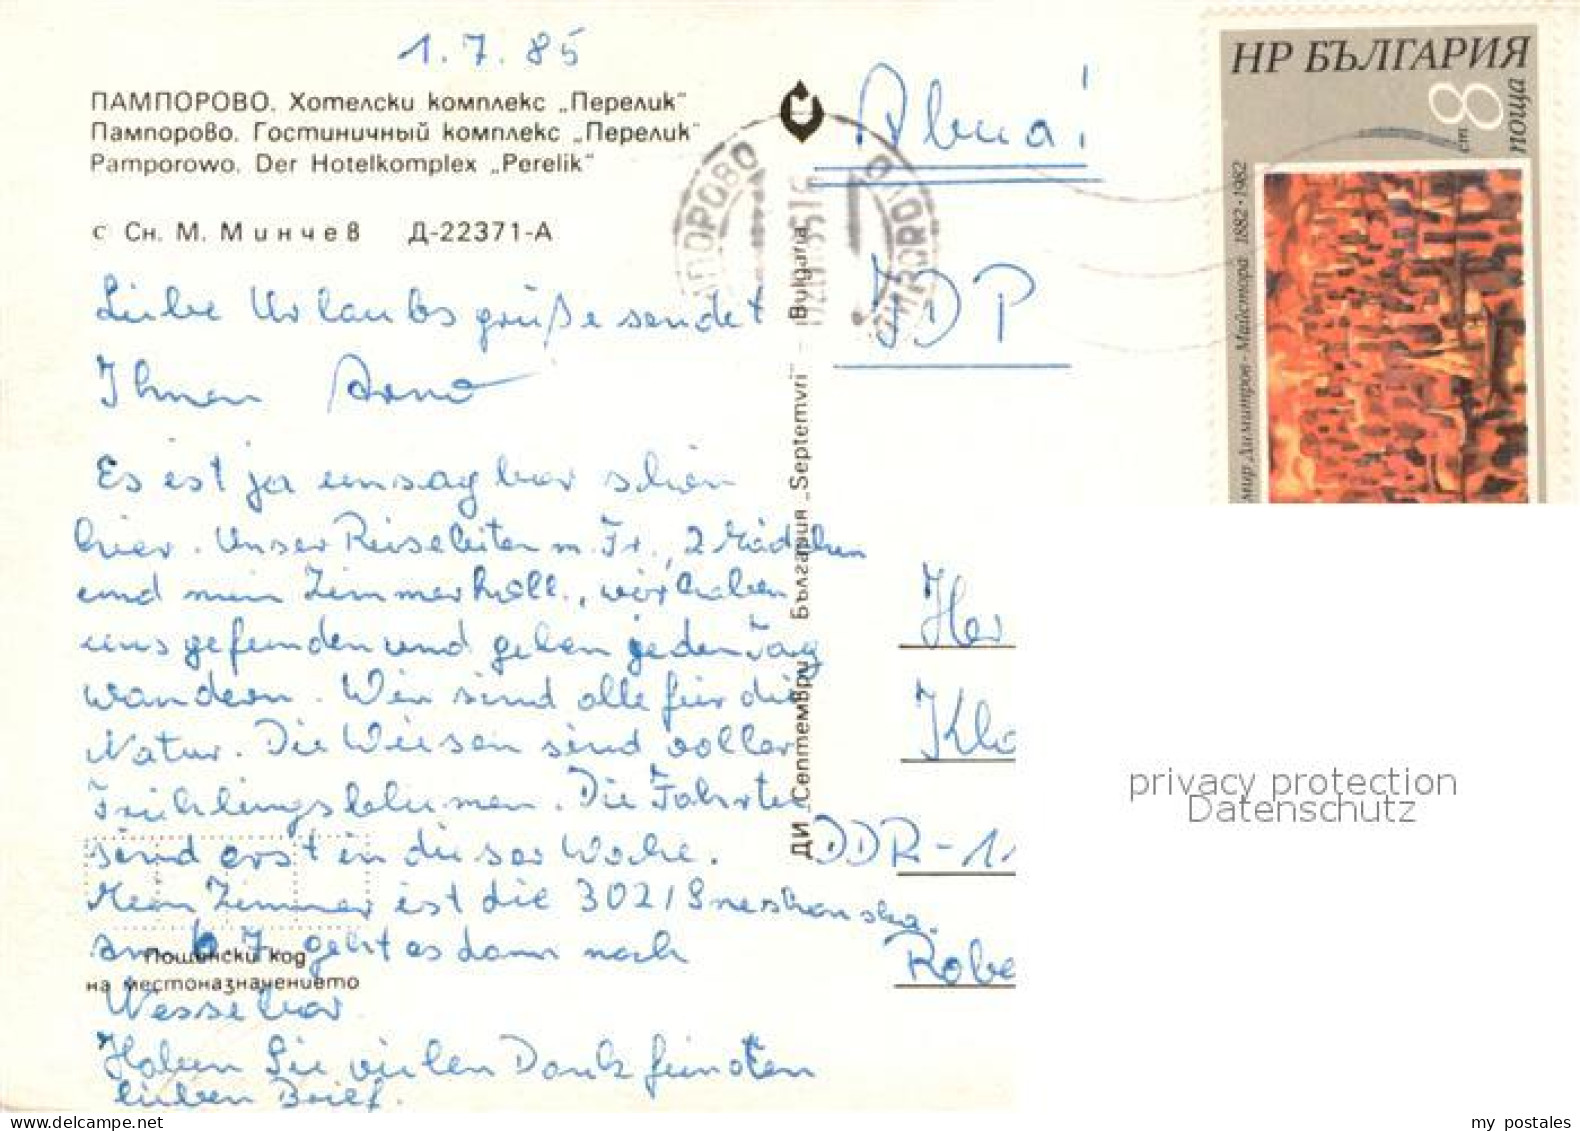 1.7.85
ПАМПОРОВО. Хотелски комплекс „Перелик“
Пампорово. Гостиничный комплекс „Перелик“
Pamporowo. Der Hotelkomplex „Perelik“
с Сн. М. Минчев Д-22371-А
Liebe Urlaubsgrüße sendet
Ihnen
Es ist ja unsagbar schön
hier. Unser Reiseleiter m. Fr., 2 Mädchen
und mein Zimmerkoll., wir haben
uns gefunden und gehen jeden Tag
wandern. Wir sind alle für die
Natur. Die Wiesen sind voller
Frühlingsblumen. Die Fahrten
sind erst in dieser Woche.
Mein Zimmer ist die 302/Sneshanska.
am 7. geht es dann nach
Nessebar
Haben Sie vielen Dank für den
lieben Brief.
Пощенски код
на местоназначението
ДИ „Септември“ България „Septemvri“ - Bulgaria
ПАМПОРОВО
НР БЪЛГАРИЯ
8 ст
поща
мир Димитров - Майстора 1882 · 1982
Her
Klo
DDR-11
Robe
privacy protection
Datenschutz
my postales